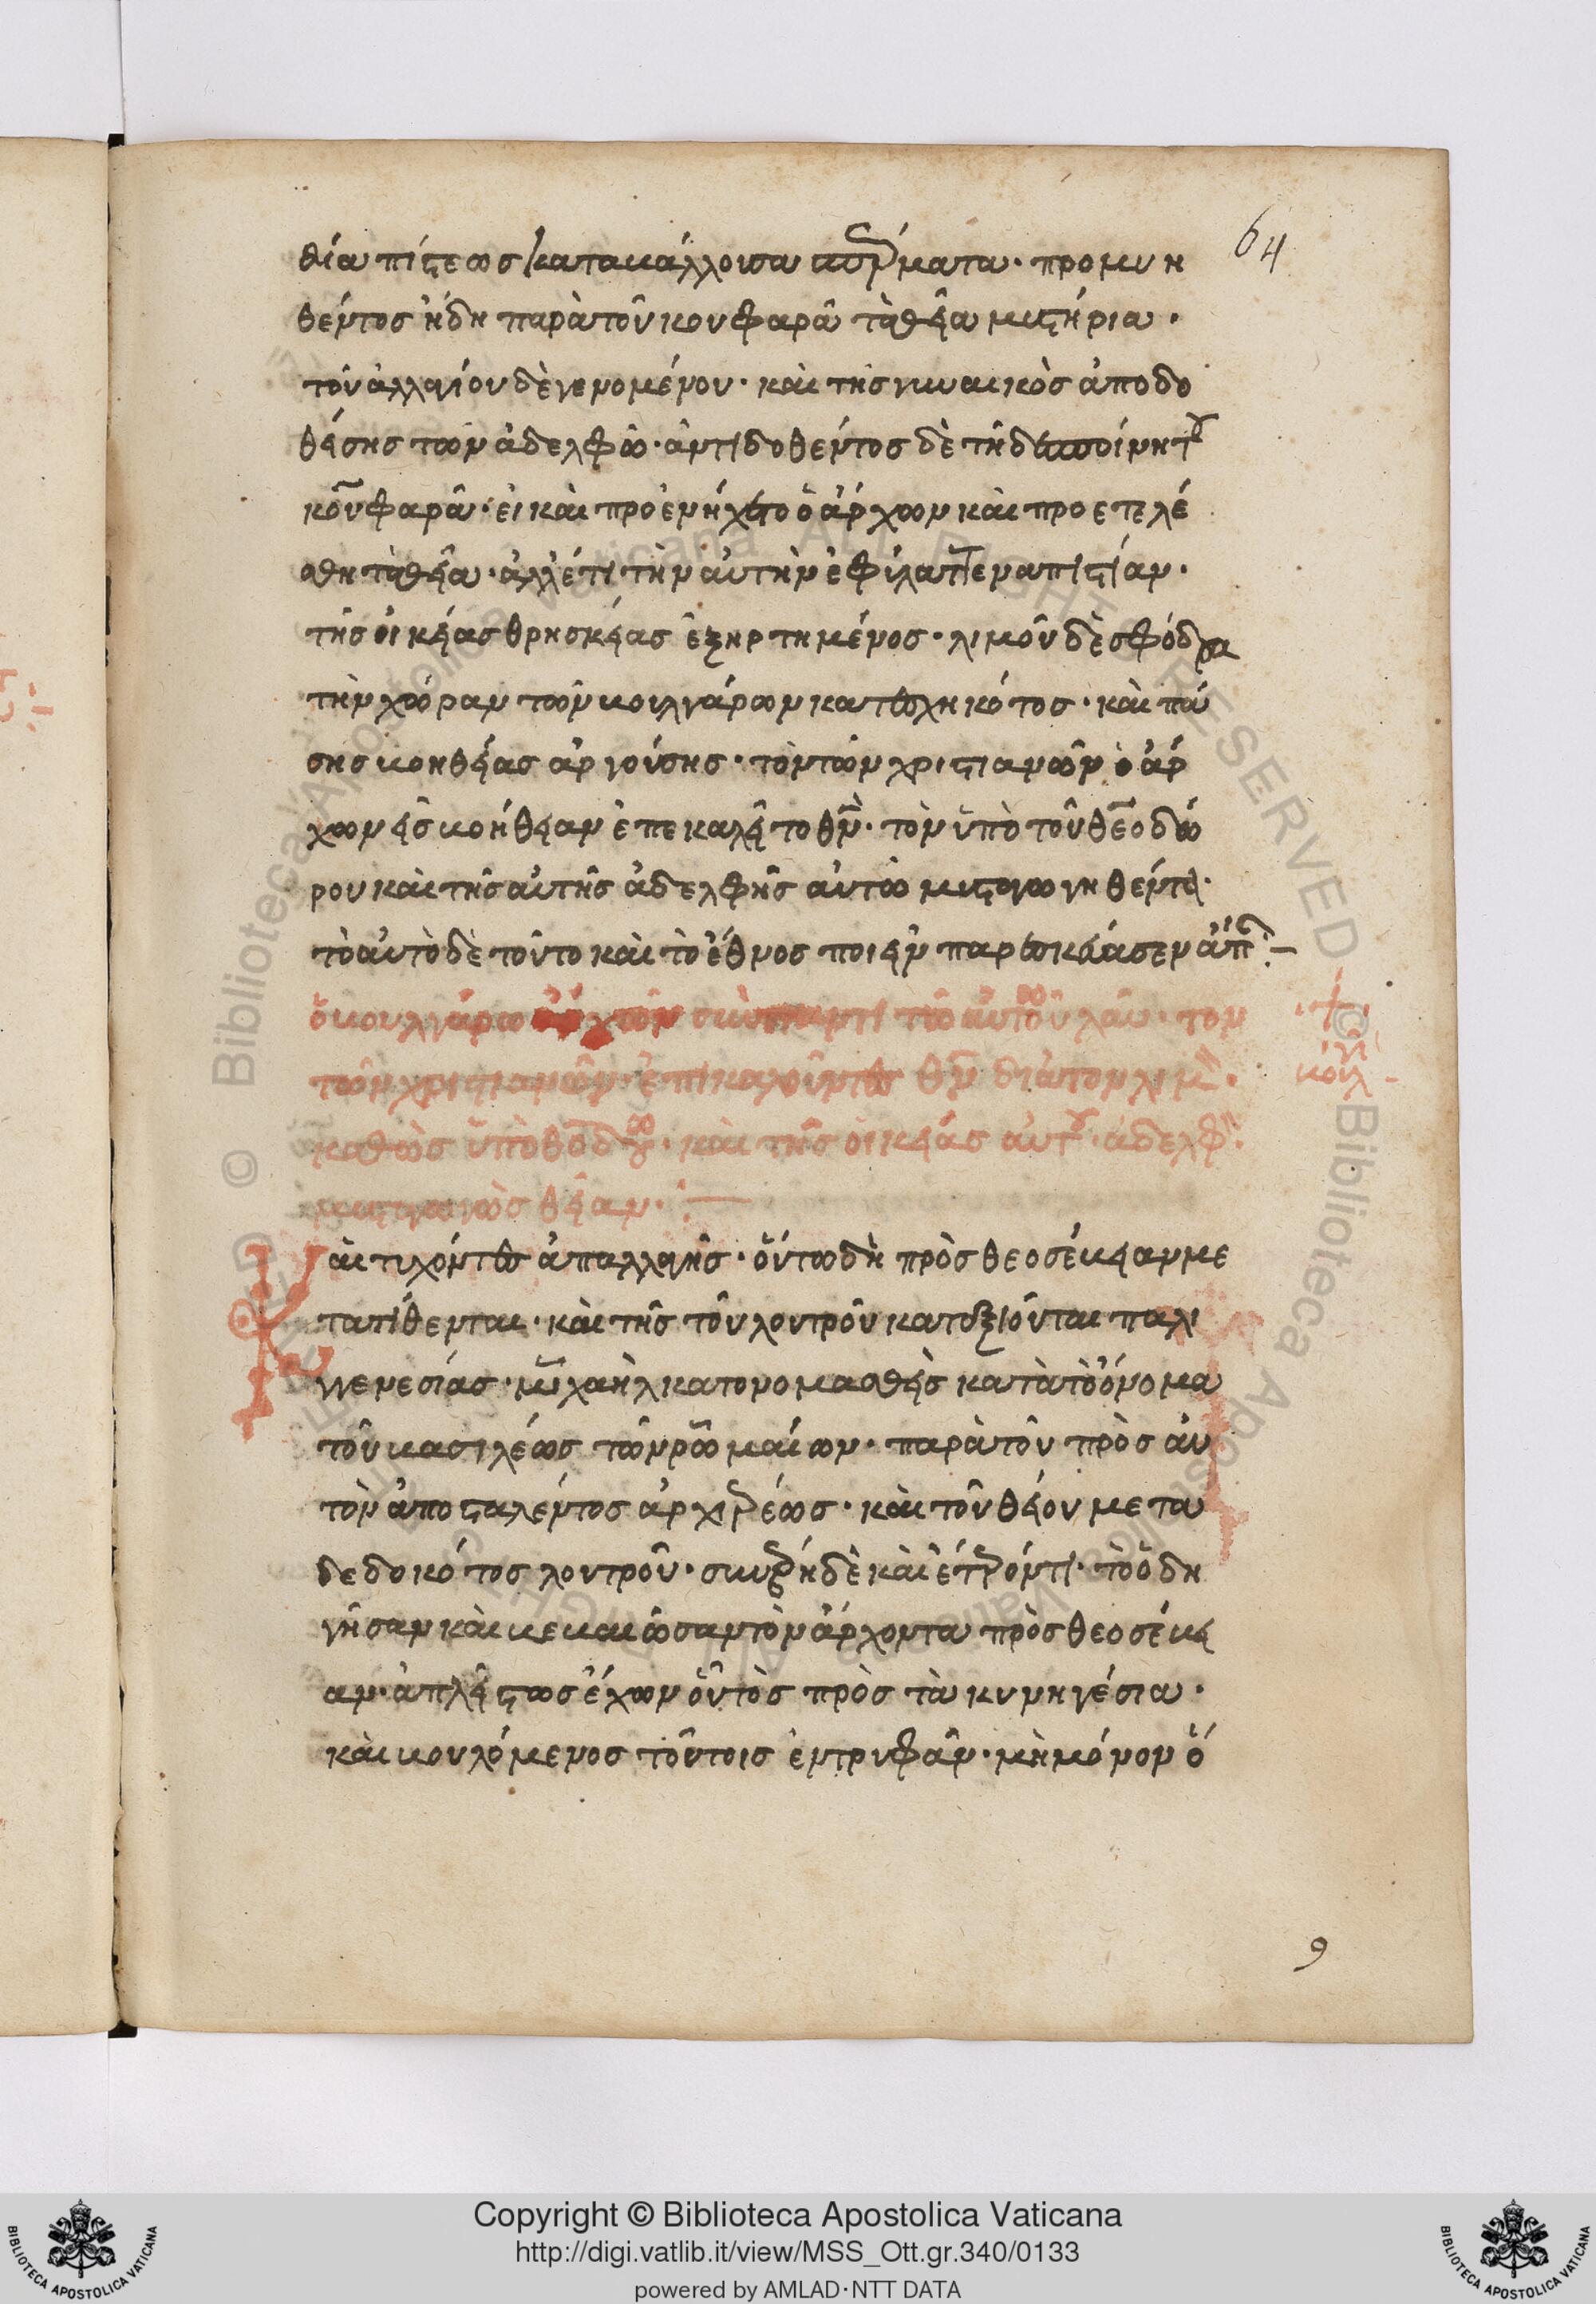 64
θεία πίστεως καταβάλλουσα σπέρματα· προμυη
θέντος ἤδη παρὰ τοῦ κουφαρᾶ τὰ θεῖα μυστήρια·
τοῦ ἀλλαγίου δὲ γενομένου· καὶ τῆς γυναικὸς ἀποδο
θείσης τῶν ἀδελφῶ· ἀντιδοθέντος δὲ τῆ δεσποίνη τοῦ
κουφαρᾶ· εἰ καὶ προενήχετο ὁ ἄρχων καὶ προετελέ
σθη τὰ θεῖα· ἀλλ' ἔτι τὴν αὐτὴν ἐφύλαττεν ἀπιστίαν·
τῆς οἰκείας θρησκείας ἐξηρτημένος· λιμοῦ δὲ σφόδρα
τὴν χώραν τῶν βουλγάρων κατεσχηκότος· καὶ πά
σης βοηθείας ἀργούσης· τὸν τῶν χριστιανῶν ὁ ἄρ
χων εἰς βοήθειαν ἐπεκαλεῖτο θν· τὸν ὑπὸ τοῦ θεοδώ
ρου καὶ τῆς αὐτῆς ἀδελφῆς αὐτῶ μυσταγωγηθέντα·
τὸ αὐτὸ δὲ τοῦτο καὶ τὸ ἔθνος ποιεῖν παρεσκεύασεν ἅπαν:-
ὁ βουλγάρω ἄρχων σὺν παντὶ τῶ αὐτοῦ λαῶ· τον
τῶν χριστιανῶν ἐπικαλοῦνται θν διὰ τον λιμόν·
καθὼς ὑπὸ θεοδώρου· καὶ τῆς οἰκείας αὐτοῦ ἀδελφῆς·
θεῖαν·:-
Καὶ τυχόντες ἀπαλλαγῆς· οὕτω δὴ πρὸς θεοσέβειαν με
τατίθενται· καὶ τῆς τοῦ λουτροῦ καταξιοῦνται παλι
γγενεσίας· μιχαὴλ κατονομασθεὶς κατὰ τὸ ὄνομα
τοῦ βασιλέως τῶν ρωμαίων· παρὰ τοῦ πρὸς αὐ
τὸν ἀποσταλέντος ἀρχιερέως· καὶ τοῦ θείου μετα
δεδοκότος λουτροῦ· συνέβη δὲ καὶ ἕτερόν τι· τὸ ὁδη
γῆσαν καὶ βεβαιῶσαν τὸν ἄρχοντα πρὸς θεοσέβει
αν· ἀπλείστως ἔχων οὗτος πρὸς τὰ κυνηγέσια·
καὶ βουλόμενος τούτοις ἐντρυφᾶν· μὴ μόνον ὅ
9
Copyright © Biblioteca Apostolica Vaticana
http://digi.vatlib.it/view/MSS_Ott.gr.340/0133
powered by AMLAD·NTT DATA